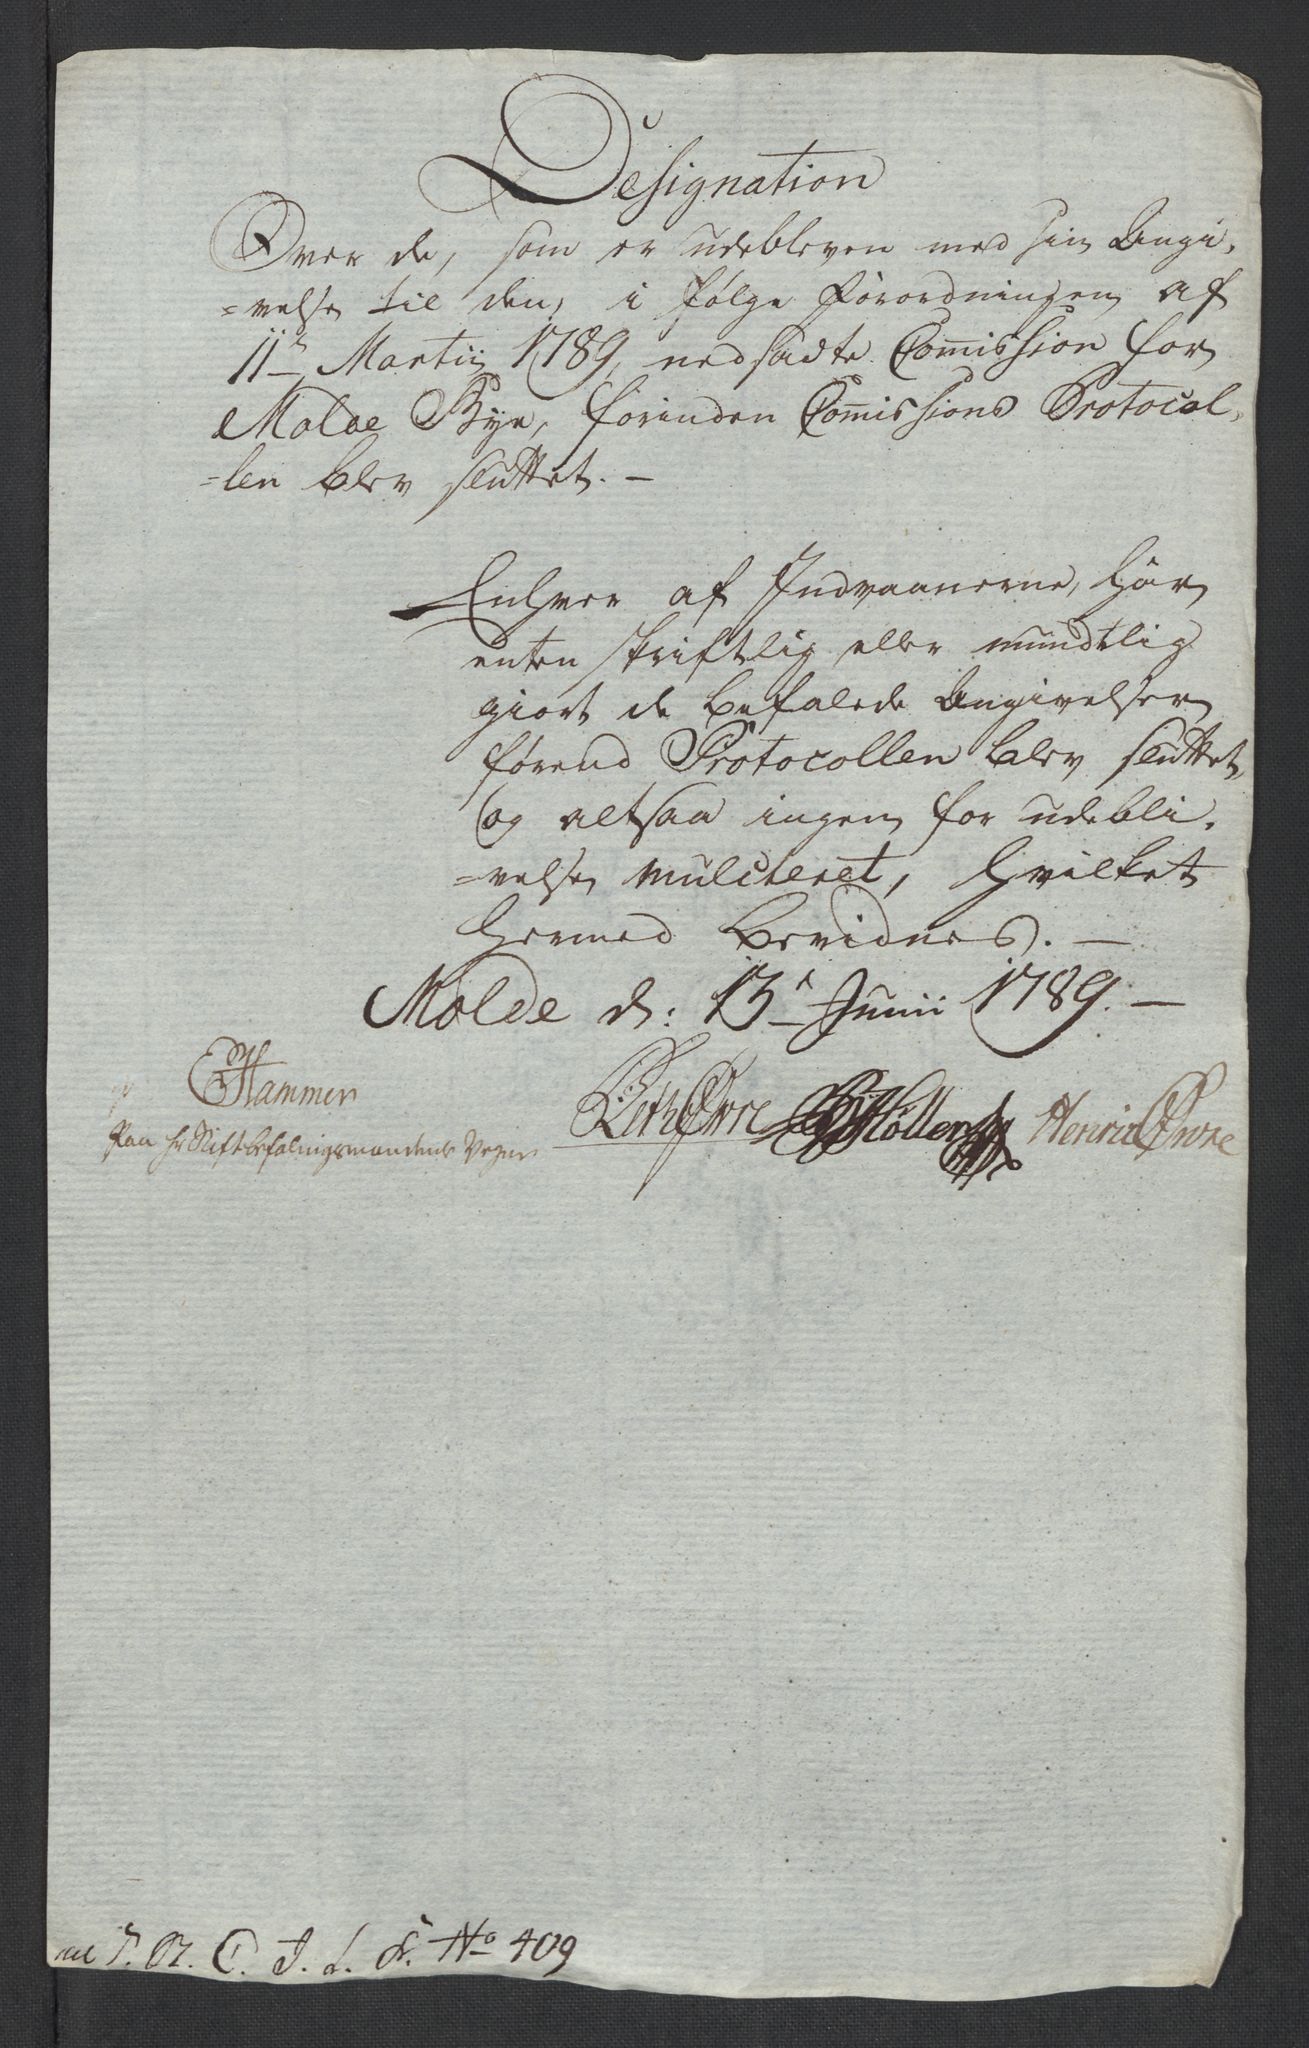 Designation
Over de, som er udebleven med sin Angi,
=velse til den, i følge Forordningen af
11te Martii 1789, nedsadte Comission for
Molde Bye, forinden Comissions Protocol,
=len blev sluttet. —
Enhver af Indvaanerne, har
enten skriftlig eller mundtlig
giort de befalede Angivelser,
førend Protocollen blev sluttet,
og altsaa ingen for udebli,
=velse mulcteret, hvilket
hermed bevidnes. —
Molde d: 13de Junii 1789. —
Hammer
Paa Hr Stiftbefalingsmandens Vegne
Owre Møllerup Henric Owre
No 409